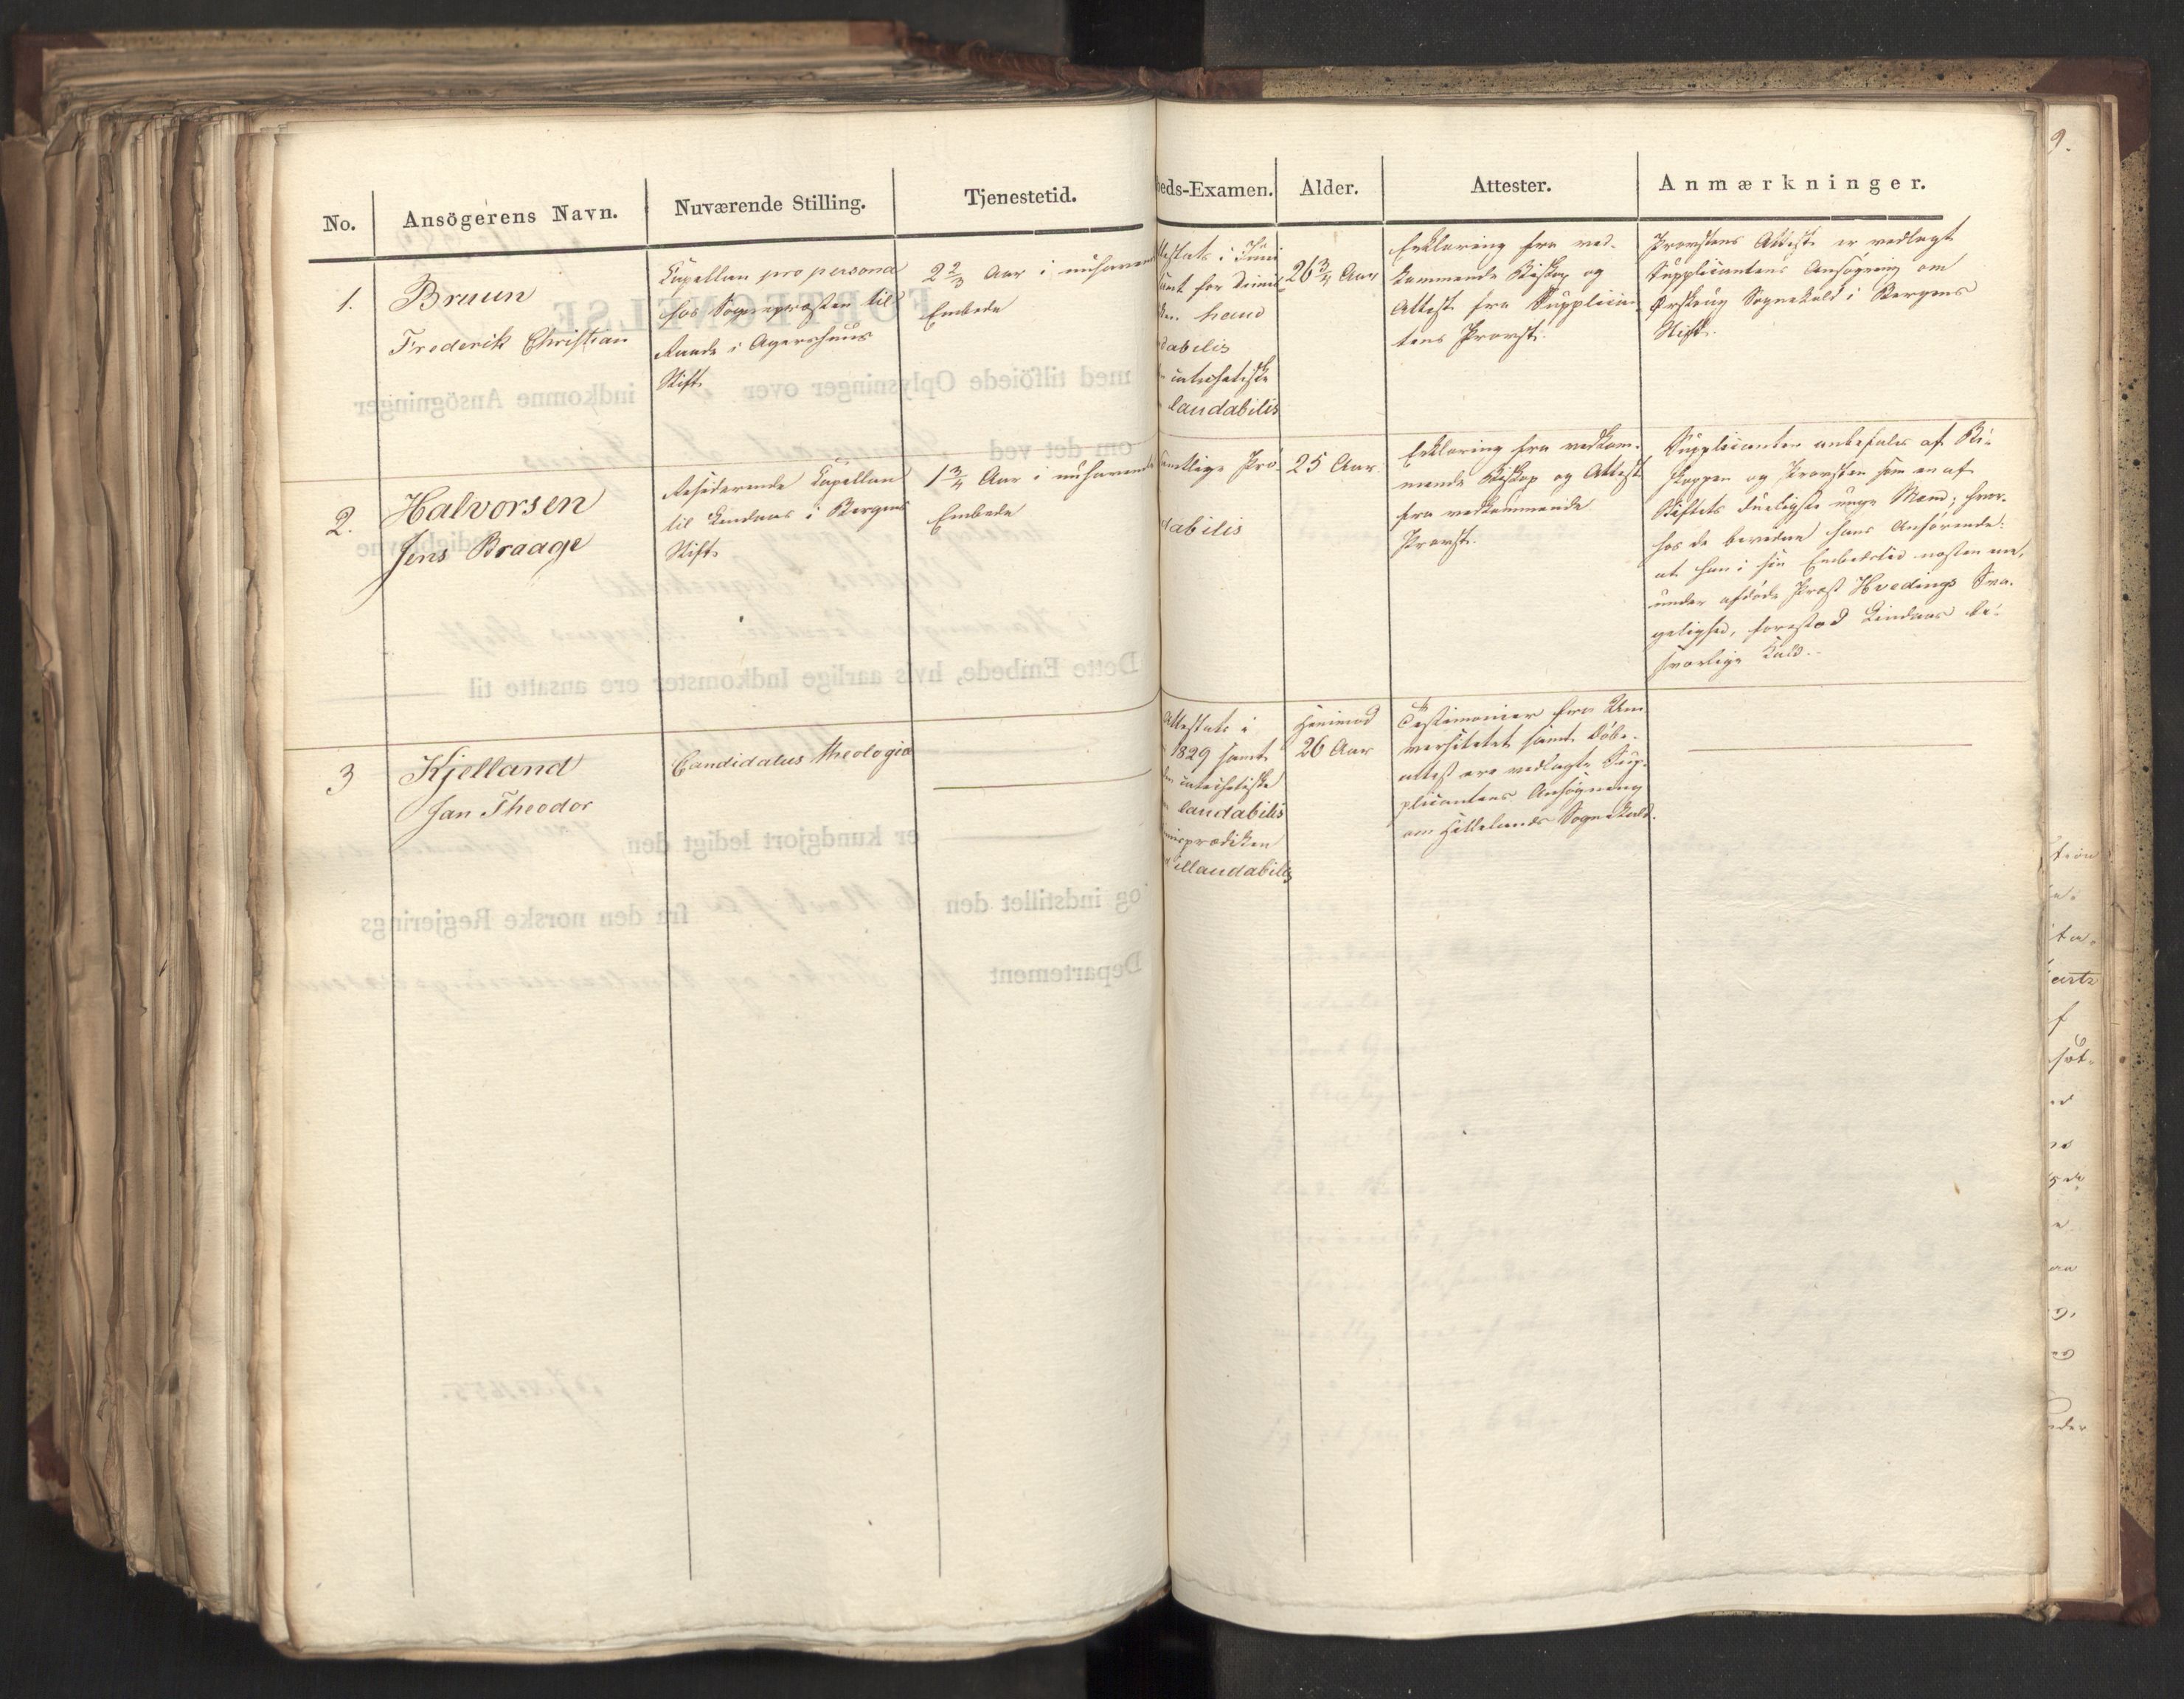 No.
Ansögerens Navn.
Nuværende Stilling.
Tjenestetid.
eds-Examen.
Alder.
Attester.
Anmærkninger.
1.
Bruun
Frederik Christian
Capellan pro persona
hos Sognepræsten til
Raade i Agershuus
Stift
2 2/3 Aar i nuhavende
Embede
i Juni
for Dimis
haud
dabilis
catechetiske
laudabilis
26 3/4 Aar
Erklæring fra ved-
kommende Biskop og
Attest fra Supplican-
tens Provst.
Provstens Attest er vedlagt
Supplicantens Ansøgning om
Ørskoug Sognekald i Bergens
Stift.
2.
Halvorsen
Jens Braage
Residerende Capellan
til Lindaas i Bergens
Stift
1 3/4 Aar i nuhavende
Embede
mtlige Præ-
dabilis
25 Aar
Erklæring fra vedkom-
mende Biskop og Attest
fra vedkommende
Provst.
Supplicanten anbefales af Bi-
skoppen og Provsten som en af
Stiftets dueligste unge Mænd; hvor-
hos de bevidne hans Anførende:
at han i sin Embedstid næsten ene,
under afdøde Præst Hvedings Sva-
gelighed, forestod Lindaas be-
sværlige Kald.
3
Kjelland
Jan Theodor
Candidatus theologiæ
Attestats i
1829 samt
catechetiske
laudabilis
isprædiken
illaudabilis
henimod
26 Aar
Testimonier fra Uni-
versitetet samt Døbe-
attest ere vedlagte Sup-
plicantens Ansøgning
om Hellelands Sognekald.